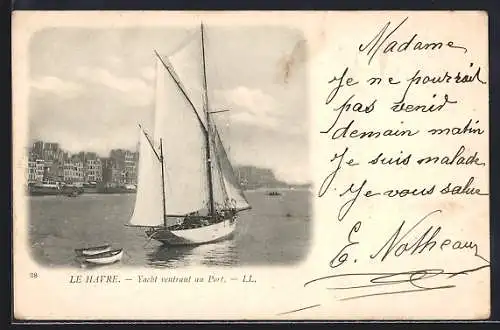 Madame
Je ne pourrait
pas venir
demain matin
Je suis malade
Je vous salue
E. Notheaux
28
LE HAVRE. - Yacht rentrant au Port. - LL.